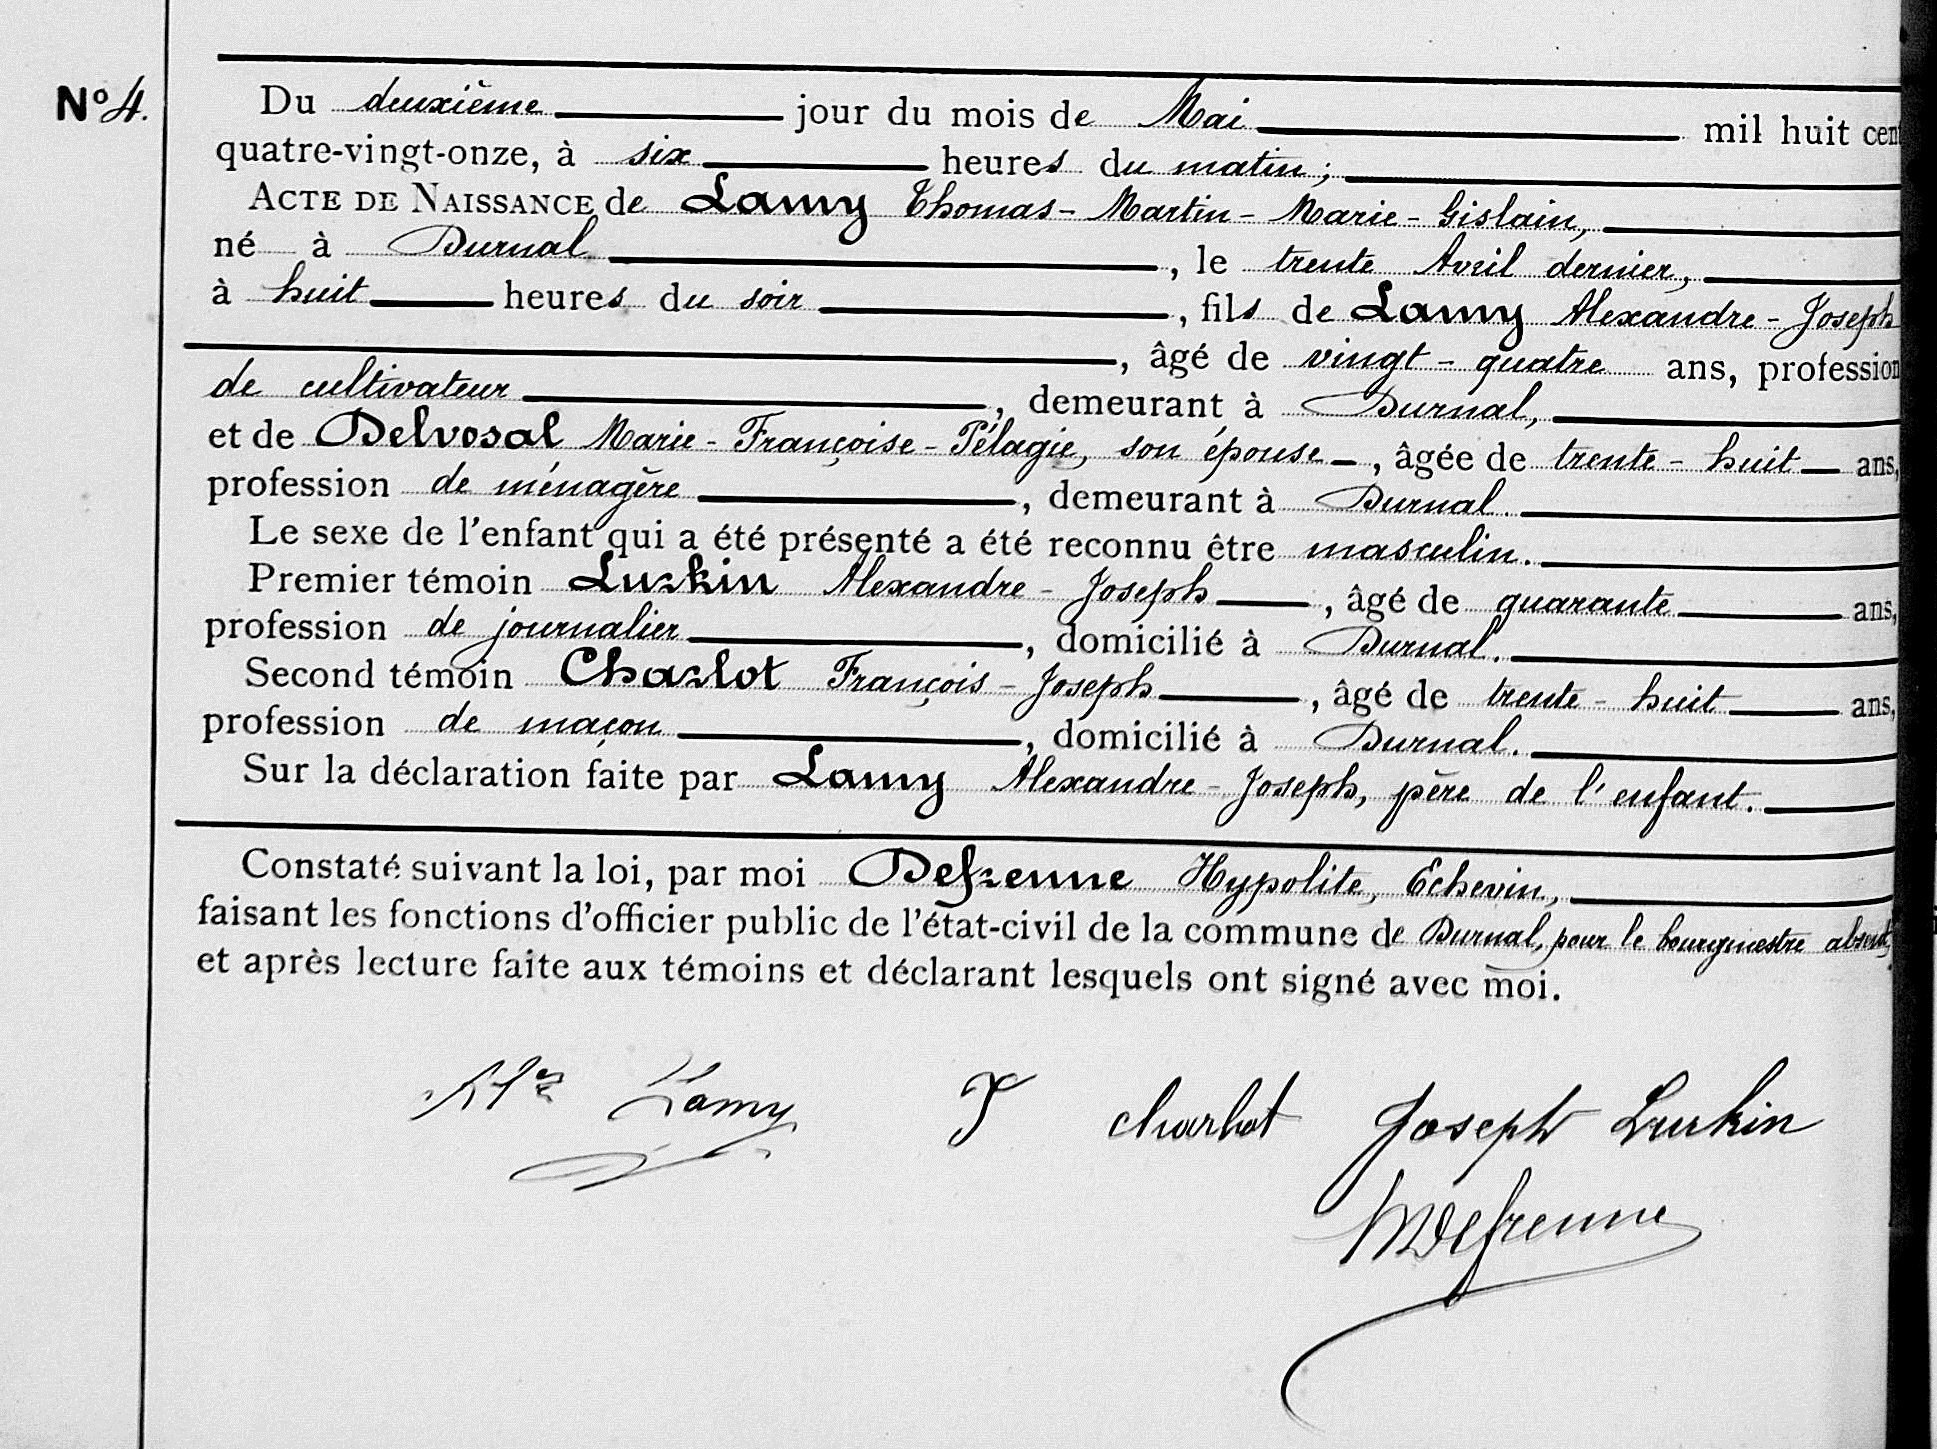 Nº 4.
Du deuxième jour du mois de Mai mil huit cen
quatre-vingt-onze, à six heures du matin ;
ACTE DE NAISSANCE de Lamy Thomas - Martin - Marie - Gislain,
né à Durnal , le trente Avril dernier,
à huit heures du soir , fils de Lamy Alexandre - Joseph
, âgé de vingt - quatre ans, profession
de cultivateur , demeurant à Durnal,
et de Delvosal Marie - Françoise - Pélagie, son épouse , âgée de trente - huit ans,
profession de ménagère , demeurant à Durnal.
Le sexe de l'enfant qui a été présenté a été reconnu être masculin.
Premier témoin Lurkin Alexandre - Joseph , âgé de quarante ans,
profession de journalier , domicilié à Durnal.
Second témoin Charlot François - Joseph , âgé de trente - huit ans,
profession de maçon , domicilié à Durnal.
Sur la déclaration faite par Lamy Alexandre - Joseph, père de l'enfant.
Constaté suivant la loi, par moi Defrenne Hypolite, Echevin,
faisant les fonctions d'officier public de l'état-civil de la commune de Durnal, pour le bourgmestre absent,
et après lecture faite aux témoins et déclarant lesquels ont signé avec moi.
Alex Lamy J charlot Joseph Lurkin
HDefrenne